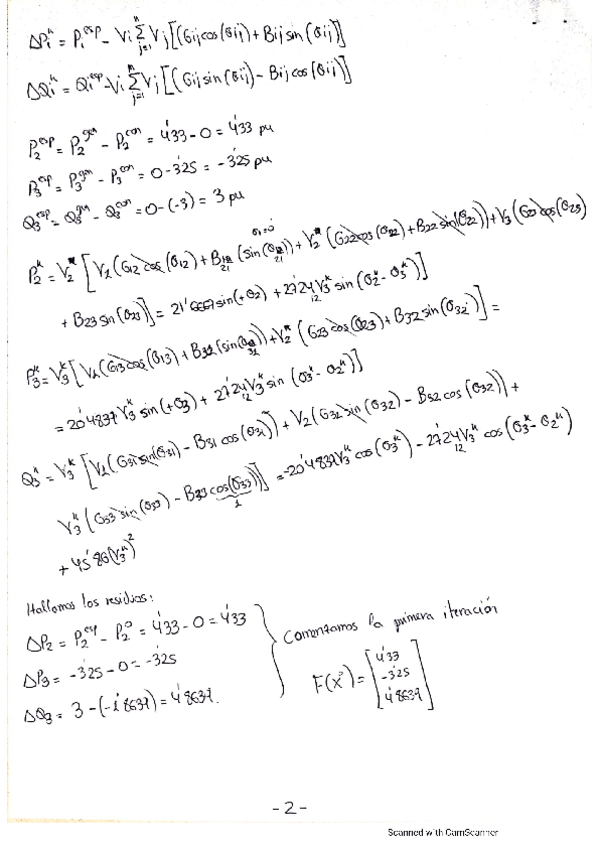 ΔPᵢᵏ = Pᵢᵉˢᵖ - Vᵢ Σⁿⱼ₌₁ Vⱼ [(Gij cos(θij) + Bij sin(θij)]
ΔQᵢᵏ = Qᵢᵉˢᵖ - Vᵢ Σⁿⱼ₌₁ Vⱼ [(Gij sin(θij) - Bij cos(θij)]
P₂ᵉˢᵖ = P₂ᵍᵉⁿ - P₂ᶜᵒⁿ = 4'33 - 0 = 4'33 pu
P₃ᵉˢᵖ = P₃ᵍᵉⁿ - P₃ᶜᵒⁿ = 0 - 3'25 = -3'25 pu
Q₃ᵉˢᵖ = Q₃ᵍᵉⁿ - Q₃ᶜᵒⁿ = 0 - (-3) = 3 pu
θ₁=0
P₂ᵏ = V₂ [V₁(G12 cos(θ12) + B21 (sin(θ21)) + V₂ (G22 cos(θ22) + B22 sin(θ22)) + V₃(G23 cos(θ23)
+ B23 sin(θ23)] = 21'6667 sin(+θ2) + 27'2412 V₃ᵏ sin(θ₂ᵏ - θ₃ᵏ)]
P₃ᵏ = V₃ᵏ [V₁(G13 cos(θ13) + (sin(θ)) + V₂ᵏ (G23 cos(θ23) + B32 sin(θ32)] =
= 20'4837 V₃ᵏ sin(+θ3) + 27'2412 V₃ᵏ sin(θ₃ᵏ - θ₂ᵏ)]
Q₃ᵏ = V₃ᵏ [V₁(G31 sin(θ31) - B31 cos(θ31)) + V₂(G32 sin(θ32) - B32 cos(θ32)) +
V₃ᵏ (G33 sin(θ33) - B33 cos(θ33))] = -20'4837 V₃ᵏ cos(θ₃ᵏ) - 27'2412 V₃ᵏ cos(θ₃ᵏ - θ₂ᵏ)
1
+ 45'86 (V₃ᵏ)²
Hallamos los residuos:
ΔP₂ = P₂ᵉˢᵖ - P₂⁰ = 4'33 - 0 = 4'33
ΔP₃ = -3'25 - 0 = -3'25
ΔQ₃ = 3 - (-1'8637) = 4'8637.
Comenzamos la primera iteración
F(x⁰) = [4'33
-3'25
4'8637]
- 2 -
Scanned with CamScanner